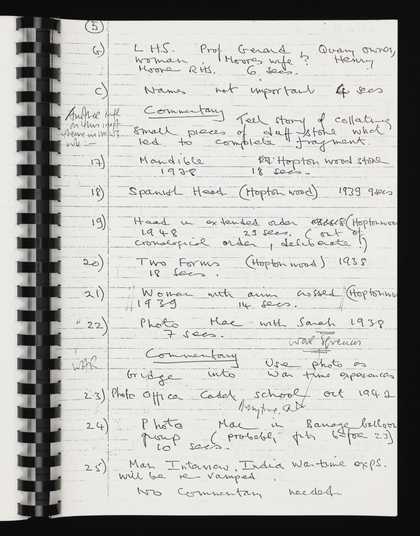 5
b) L.H.S. Prof Gerard ? Quarry owner,
woman Moores wife ? Henry
Moore R.H.S. 6 secs.
c) Names not important 4 secs
Commentary
Tell story of collating
small pieces of stone which
led to complete fragment.
17) Mandible Hopton wood stone
1938 18 secs.
18) Spanish Head (Hopton wood) 1939 9 secs
19) Head in extended order (Hopton wood
1948 25 secs. (out of
cronological order, deliberate!)
20) Two Forms (Hopton wood) 1938
18 secs.
21) Woman with arms crossed (Hopton wood
1939 14 secs.
22) Photo Mac with Sarah 1938
7 secs.
WAR
Commentary Use photo as
bridge into War time experiences
23) Photo Officer Cadet school Oct 1942
24) Photo Mac in Barrage balloon
group (probably fits before 23)
10 secs.
25) Main Interview. India war-time exps.
will be re vamped
No Commentary needed